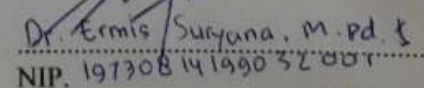 Dr. Ermis Suryana, M.Pd.I
NIP. 19730814199032001